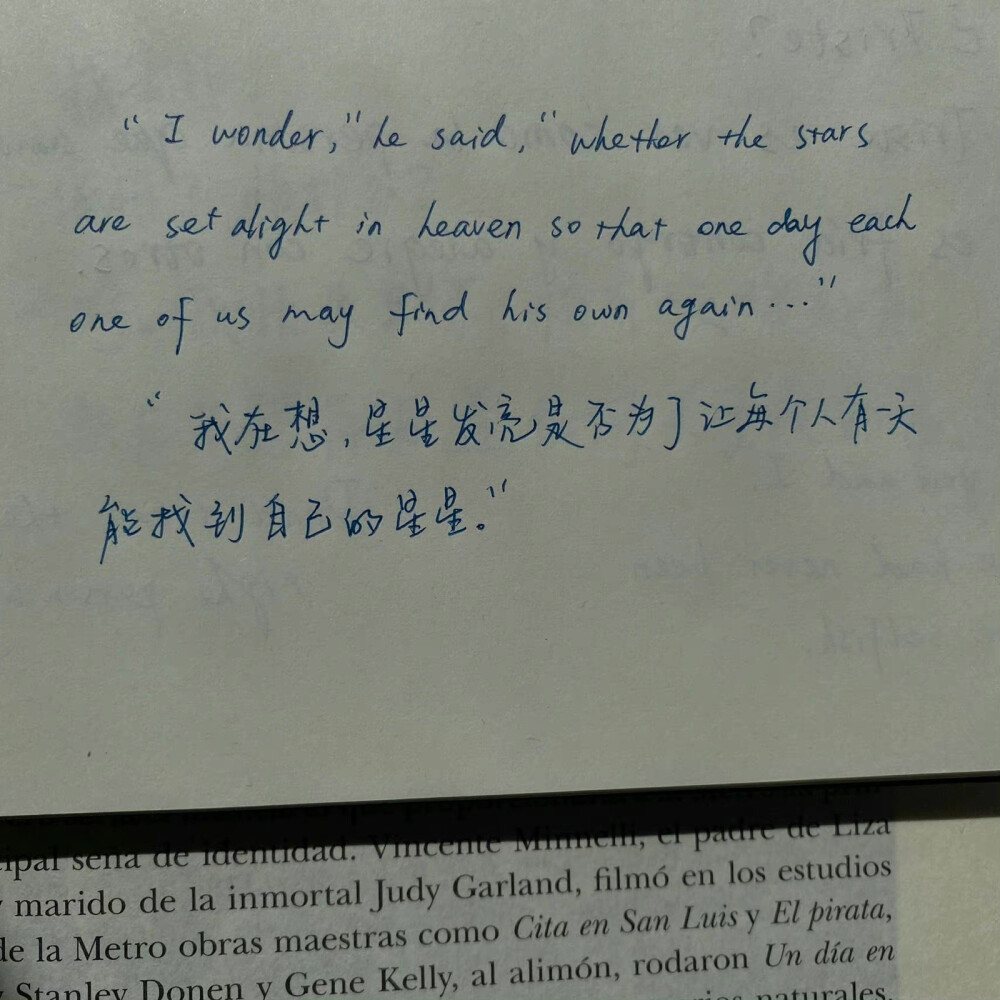 "I wonder," he said, "whether the stars
are set alight in heaven so that one day each
one of us may find his own again..."
"我在想，星星发亮是否为了让每个人有一天
能找到自己的星星。"
cipal seña de identidad. Vincente Minnelli, el padre de Liza
y marido de la inmortal Judy Garland, filmó en los estudios
de la Metro obras maestras como Cita en San Luis y El pirata,
y Stanley Donen y Gene Kelly, al alimón, rodaron Un día en
naturales.